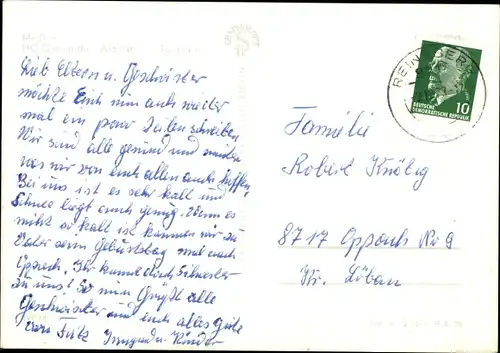 Lieb Eltern u. Geschwister
möchte Euch nun auch wieder
mal ein paar Zeilen schreiben
Wir sind alle gesund und
was wir von euch allen auch hoffen,
Bei uns ist es sehr kalt und
Schnee liegt auch genug. Wenn es
nicht so kalt ist kommen wir zu
Vater sein Geburtstag mal nach
Oppach. Ihr könnt doch
zu uns! So nun Grüßt alle
Geschwister und euch alles Gute
von Fritz Irmgard u. Kinder
DEUTSCHE
DEMOKRATISCHE REPUBLIK
10
Familie
Robert
8717 Oppach Nr 9
Kr. Löbau